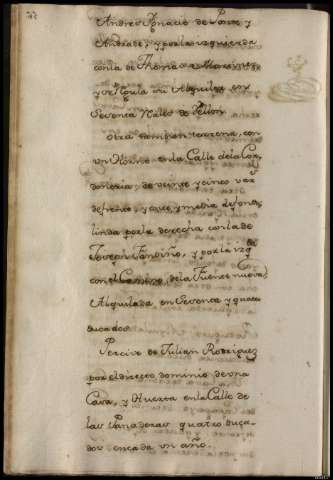 Andres Ygnacio de Ponte y
Andrade, y por la izquierda
con la de Thomas
y se regula su Alquiler en
Sesenta Reales de Vellon
Otra tambien terrena, con
un Horno en la Calle de la
de veinte y cinco var
de frente, y once y media de fondo,
linda por la derecha con la de
Joseph Fandiño, y por la izqda
con el Camino de la Fuente nueva,
Alquilada en Sesenta y quatro
ducados
Percive de Julian Rodriguez
por el directo dominio de una
Casa, y Huerta en la Calle de
las Panaderas quatro duca-
dos en cada un año.